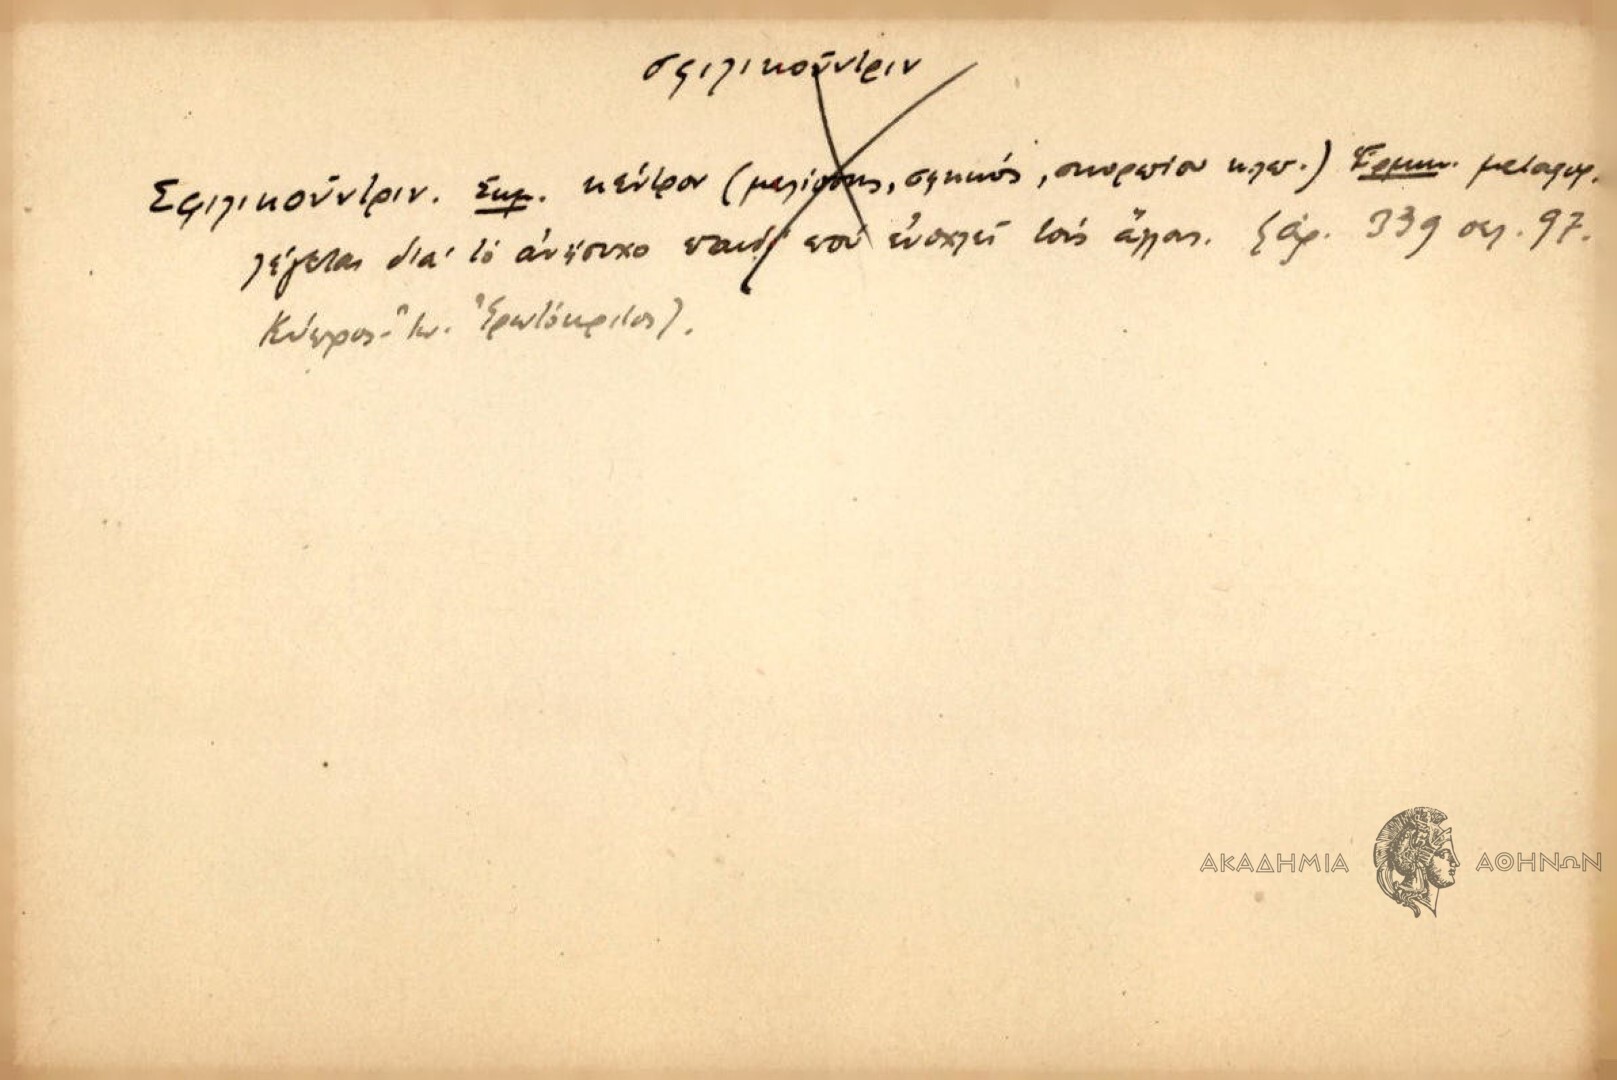 σφιλικοῦντριν
Σφιλικοῦντριν. Σημ. κέντρον (μελίσσης, σφηκός, σκορπίου κλπ.) Ἑρμην. μεταφορ.
λέγεται διὰ τὸ ἀνήσυχο παιδὶ ποὺ ἐνοχλεῖ τοὺς ἄλλους. (ἀρ. 339 σελ. 97.
Κύπρος- Ἐρωτόκριτος).
ΑΚΑΔΗΜΙΑ ΑΘΗΝΩΝ